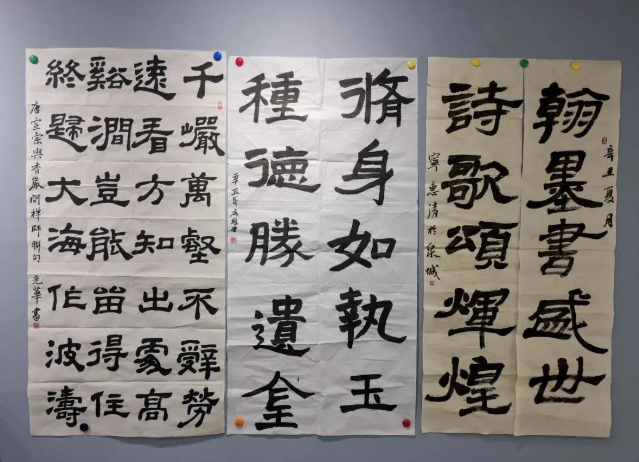 辛丑夏月
翰墨書盛世
詩歌頌輝煌
寧惠清於泉城
脩身如執玉
種德勝遺金
辛丑夏
千巖萬壑不辭勞
遠看方知出處高
谿澗豈能留得住
終歸大海作波濤
唐宣宗與香嚴閒禅師聯句 光華書